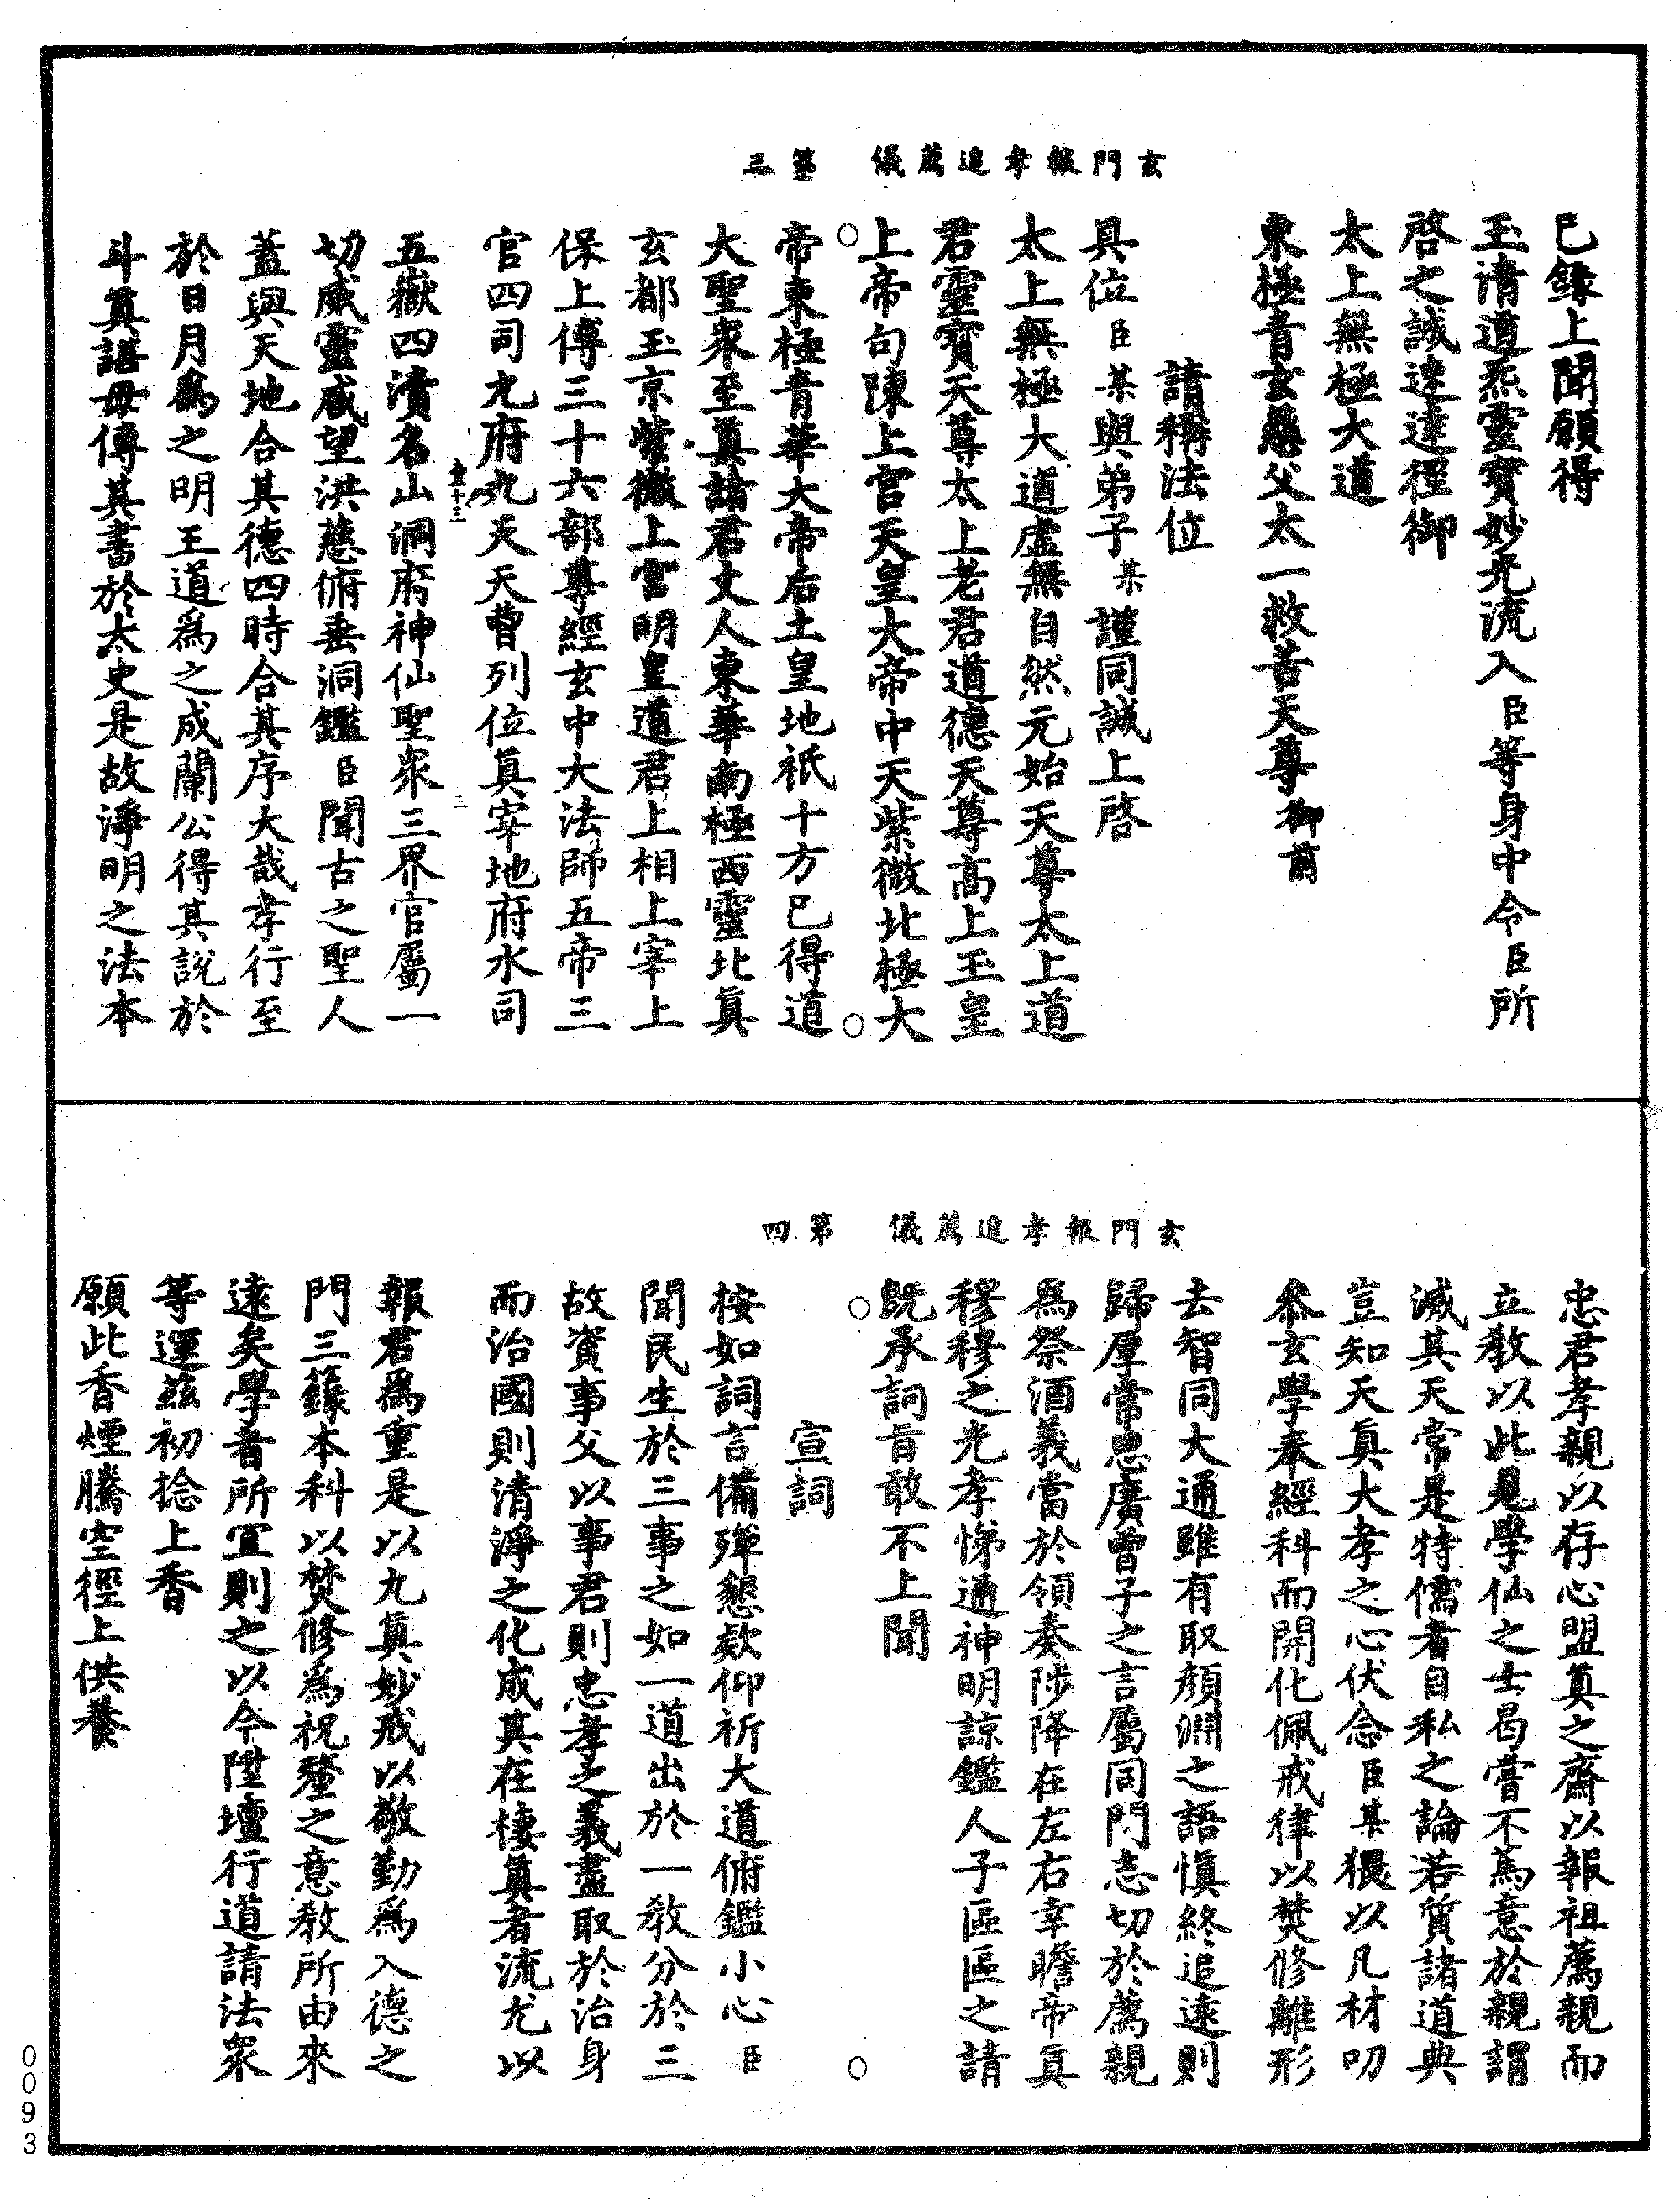 玄門報孝追薦儀　第三
已錄上聞願得
玉清道炁靈寶妙光流入臣等身中令臣所
啓之誠速達徑御
太上無極大道
東極青玄慈父太一救苦天尊御前
請稱法位
具位臣某與弟子某謹同誠上啓
太上無極大道虛無自然元始天尊太上道
君靈寶天尊太上老君道德天尊高上玉皇
上帝句陳上宮天皇大帝中天紫微北極大
帝東極青華大帝后土皇地祇十方已得道
大聖衆至真諸君丈人東華南極西靈北真
玄都玉京紫微上宮明皇道君上相上宰上
保上傅三十六部尊經玄中大法師五帝三
官四司九府九天天曹列位真宰地府水司
五嶽四瀆名山洞府神仙聖衆三界官屬一
切威靈咸望洪慈俯垂洞鑑臣聞古之聖人
蓋與天地合其德四時合其序大哉孝行至
於日月爲之明王道爲之成蘭公得其說於
斗真諶母傳其書於太史是故淨明之法本
玄門報孝追薦儀　第四
忠君孝親以存心盟真之齋以報祖薦親而
立教以此見學仙之士曷嘗不篤意於親謂
滅其天常是特儒者自私之論若質諸道典
豈知天真大孝之心伏念臣某猥以凡材叨
叅玄學奉經科而開化佩戒律以焚修離形
去智同大通雖有取顏淵之語愼終追遠則
歸厚常思廣曾子之言屬同門志切於薦親
爲祭酒義當於領奏陟降在左右幸瞻帝真
穆穆之光孝悌通神明諒鑑人子區區之請
旣承詞旨敢不上聞
宣詞
按如詞言備殫懇欵仰祈大道俯鑑小心臣
聞民生於三事之如一道出於一教分於三
故資事父以事君則忠孝之義盡取於治身
而治國則清淨之化成其在棲真者流尤以
報君爲重是以九真妙戒以敬勤爲入德之
門三籙本科以焚修為祝釐之意教所由來
遠矣學者所宜則之以今陞壇行道請法衆
等運茲初捻上香
願此香煙騰空徑上供養
0093